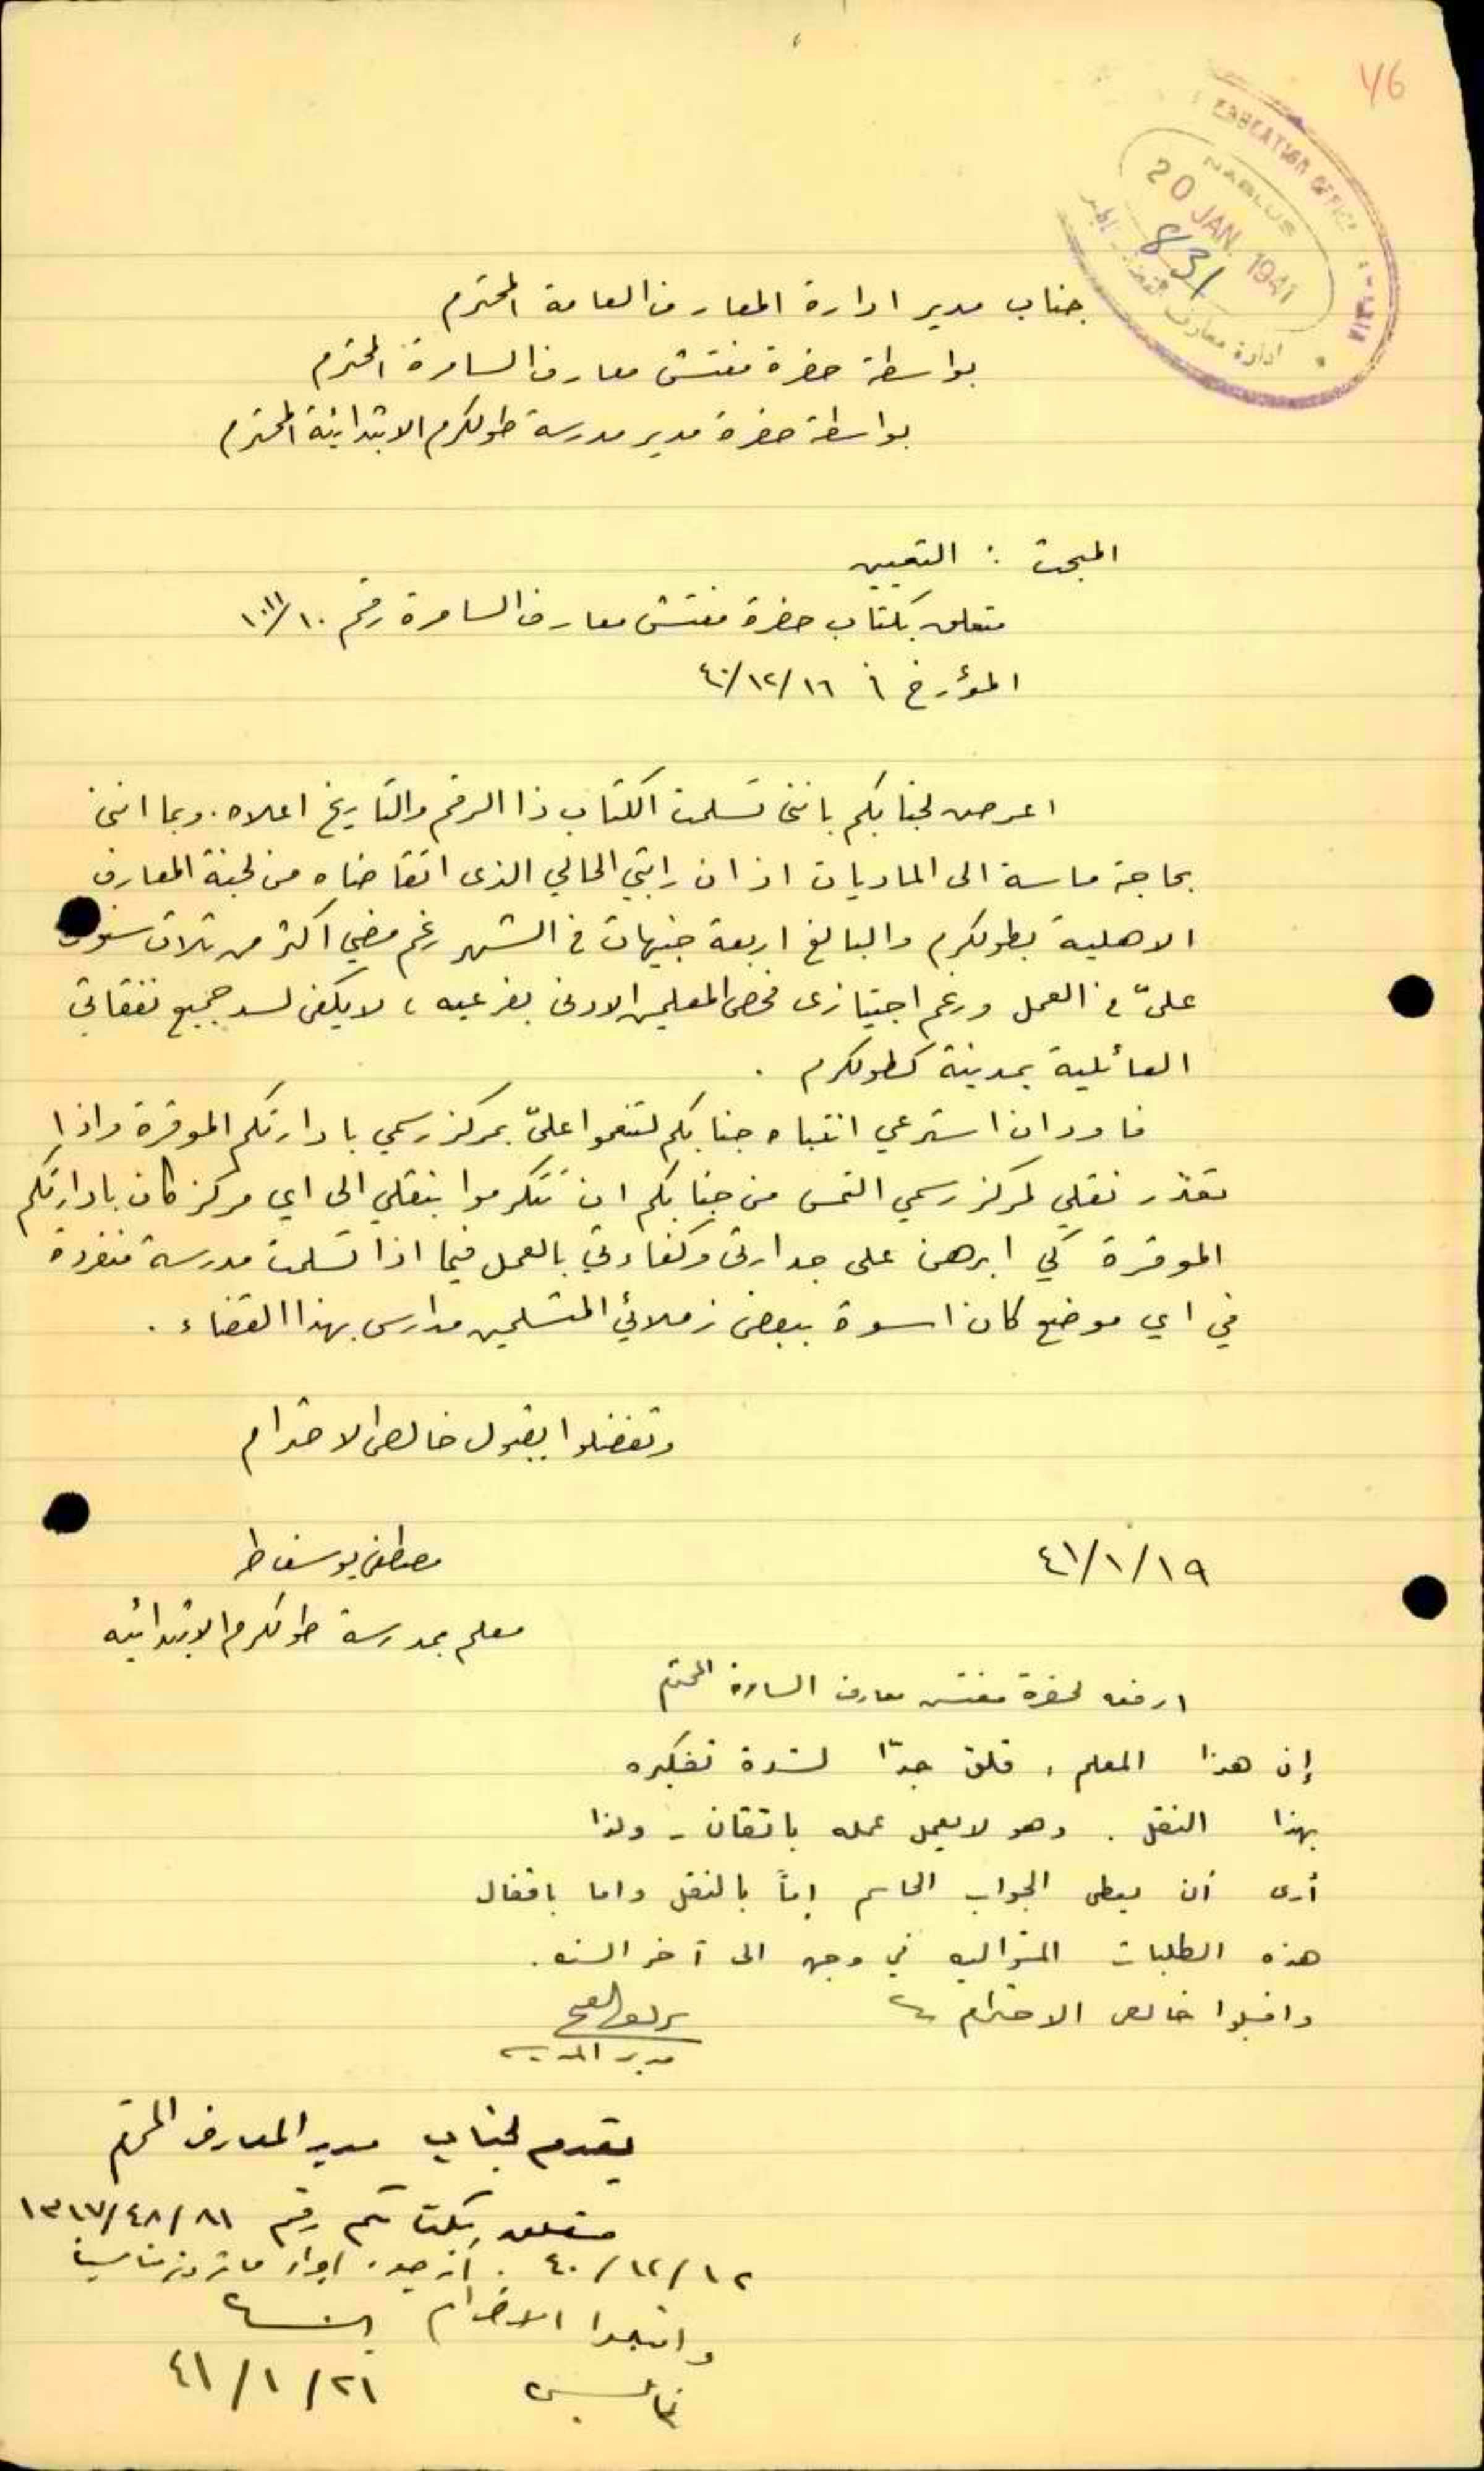 46
EDUCATION OFFICE
NABLUS
20 JAN. 1941
831
ادارة معارف
جناب مدير ادارة المعارف العامة المحترم
بواسطة حضرة مفتش معارف السامرة المحترم
بواسطة حضرة مدير مدرسة طولكرم الابتدائية المحترم
المبحث : التعيين
متعلق بكتاب حضرة مفتش معارف السامرة رقم
المؤرخ في ١٦/١٢/٤٠
اعرض لجنابكم بانني تسلمت الكتاب ذا الرقم والتاريخ اعلاه. وبما انني
بحاجة ماسة الى الماديات اذ ان راتبي الحالي الذي اتقاضاه من لجنة المعارف
الاهلية بطولكرم والبالغ اربعة جنيهات في الشهر رغم مضي اكثر من ثلاث سنوات
عليّ في العمل ورغم اجتيازي فحص المعلمين الادنى بفرعيه ، لا يكفي لسد جميع نفقاتي
العائلية بمدينة كطولكرم .
فاود ان استرعي انتباه جنابكم لتنعموا عليّ بمركز رسمي بادارتكم الموقرة واذا
تعذّر نقلي لمركز رسمي التمس من جنابكم ان تتكرموا بنقلي الى اي مركز كان بادارتكم
الموقرة كي ابرهن على جدارتي وكفاءتي بالعمل فيما اذا تسلمت مدرسة منفردة
في اي موضع كان اسوة ببعض زملائي المتسلمين مدارس بهذا القضاء .
وتفضلوا بقبول خالص الاحترام
١٩/١/٤١
مصطفى يوسف
معلم بمدرسة طولكرم الابتدائيه
ارفعه لحضرة مفتش معارف السامرة المحترم
إن هذا المعلم ، قلق جدّا لشدة تفكيره
بهذا النقل . وهو لا يعمل عمله باتقان - ولذا
أرى أن يعطى الجواب الحاسم إمّا بالنقل واما باقفال
هذه الطلبات المتواليه في وجهه الى آخر السنه .
واقبلوا خالص الاحترام
مدير المدرسة
يقدم لجناب مدير المعارف المحترم
متعلق بكتابكم رقم ١٣١٧/٤٨/٨١
١٢/١٢/٤٠ . ارجو اجراء ما ترونه مناسبا
واقبلوا الاحترام
نابلس
٢١/١/٤١